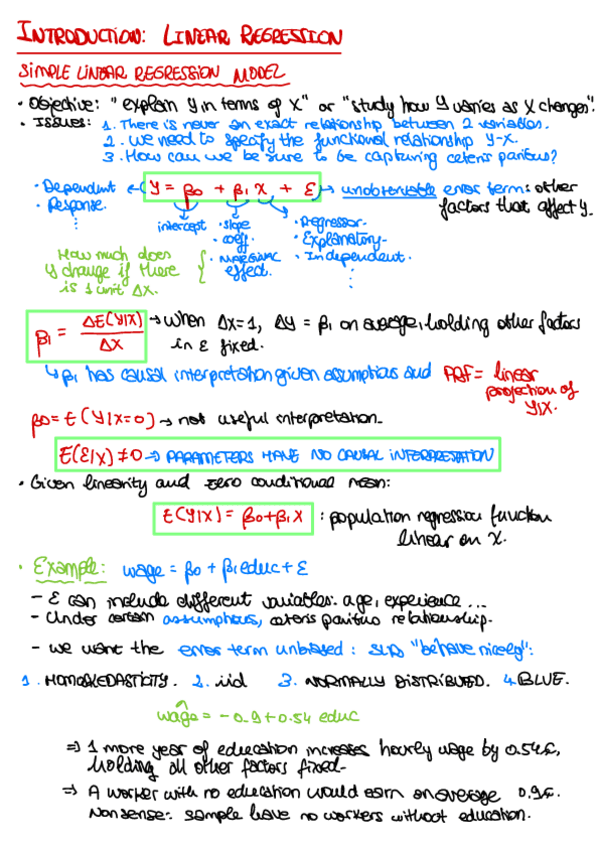 INTRODUCTION: LINEAR REGRESSION
SIMPLE LINEAR REGRESSION MODEL
• Objective: "explain y in terms of x" or "study how y varies as x changes".
• Issues: 1. There is never an exact relationship between 2 variables.
2. We need to specify the functional relationship y-x.
3. How can we be sure to be capturing ceteris paribus?
• Dependent ← y = β0 + β1 x + ε → unobservable error term: other
• Response. factors that affect y.
⋮
intercept • slope • Regressor.
• coeff. • Explanatory.
• MARGINAL effect. • Independent.
⋮
How much does
y change if there
is 1 unit Δx.
β1 = ΔE(y|x) / Δx → When Δx=1, Δy = β1 on average, holding other factors
in ε fixed.
↳ β1 has causal interpretation given assumptions and PRF = linear
projection of
y|x.
β0 = E(y|x=0) → not useful interpretation.
E(ε|x) ≠ 0 → PARAMETERS HAVE NO CAUSAL INTERPRETATION
• Given linearity and zero conditional mean:
E(y|x) = β0+β1x : population regression function
linear on x.
• Example: wage = β0 + β1educ + ε
- ε can include different variables: age, experience...
- Under certain assumptions, ceteris paribus relationship.
- We want the error term unbiased: "behave nicely":
1. HOMOSKEDASTICITY. 2. iid 3. NORMALLY DISTRIBUTED. 4. BLUE.
wagê = -0.9+0.54 educ
⇒ 1 more year of education increases hourly wage by 0.54£,
holding all other factors fixed.
⇒ A worker with no education would earn on average 0.9£.
Nonsense: sample have no workers without education.